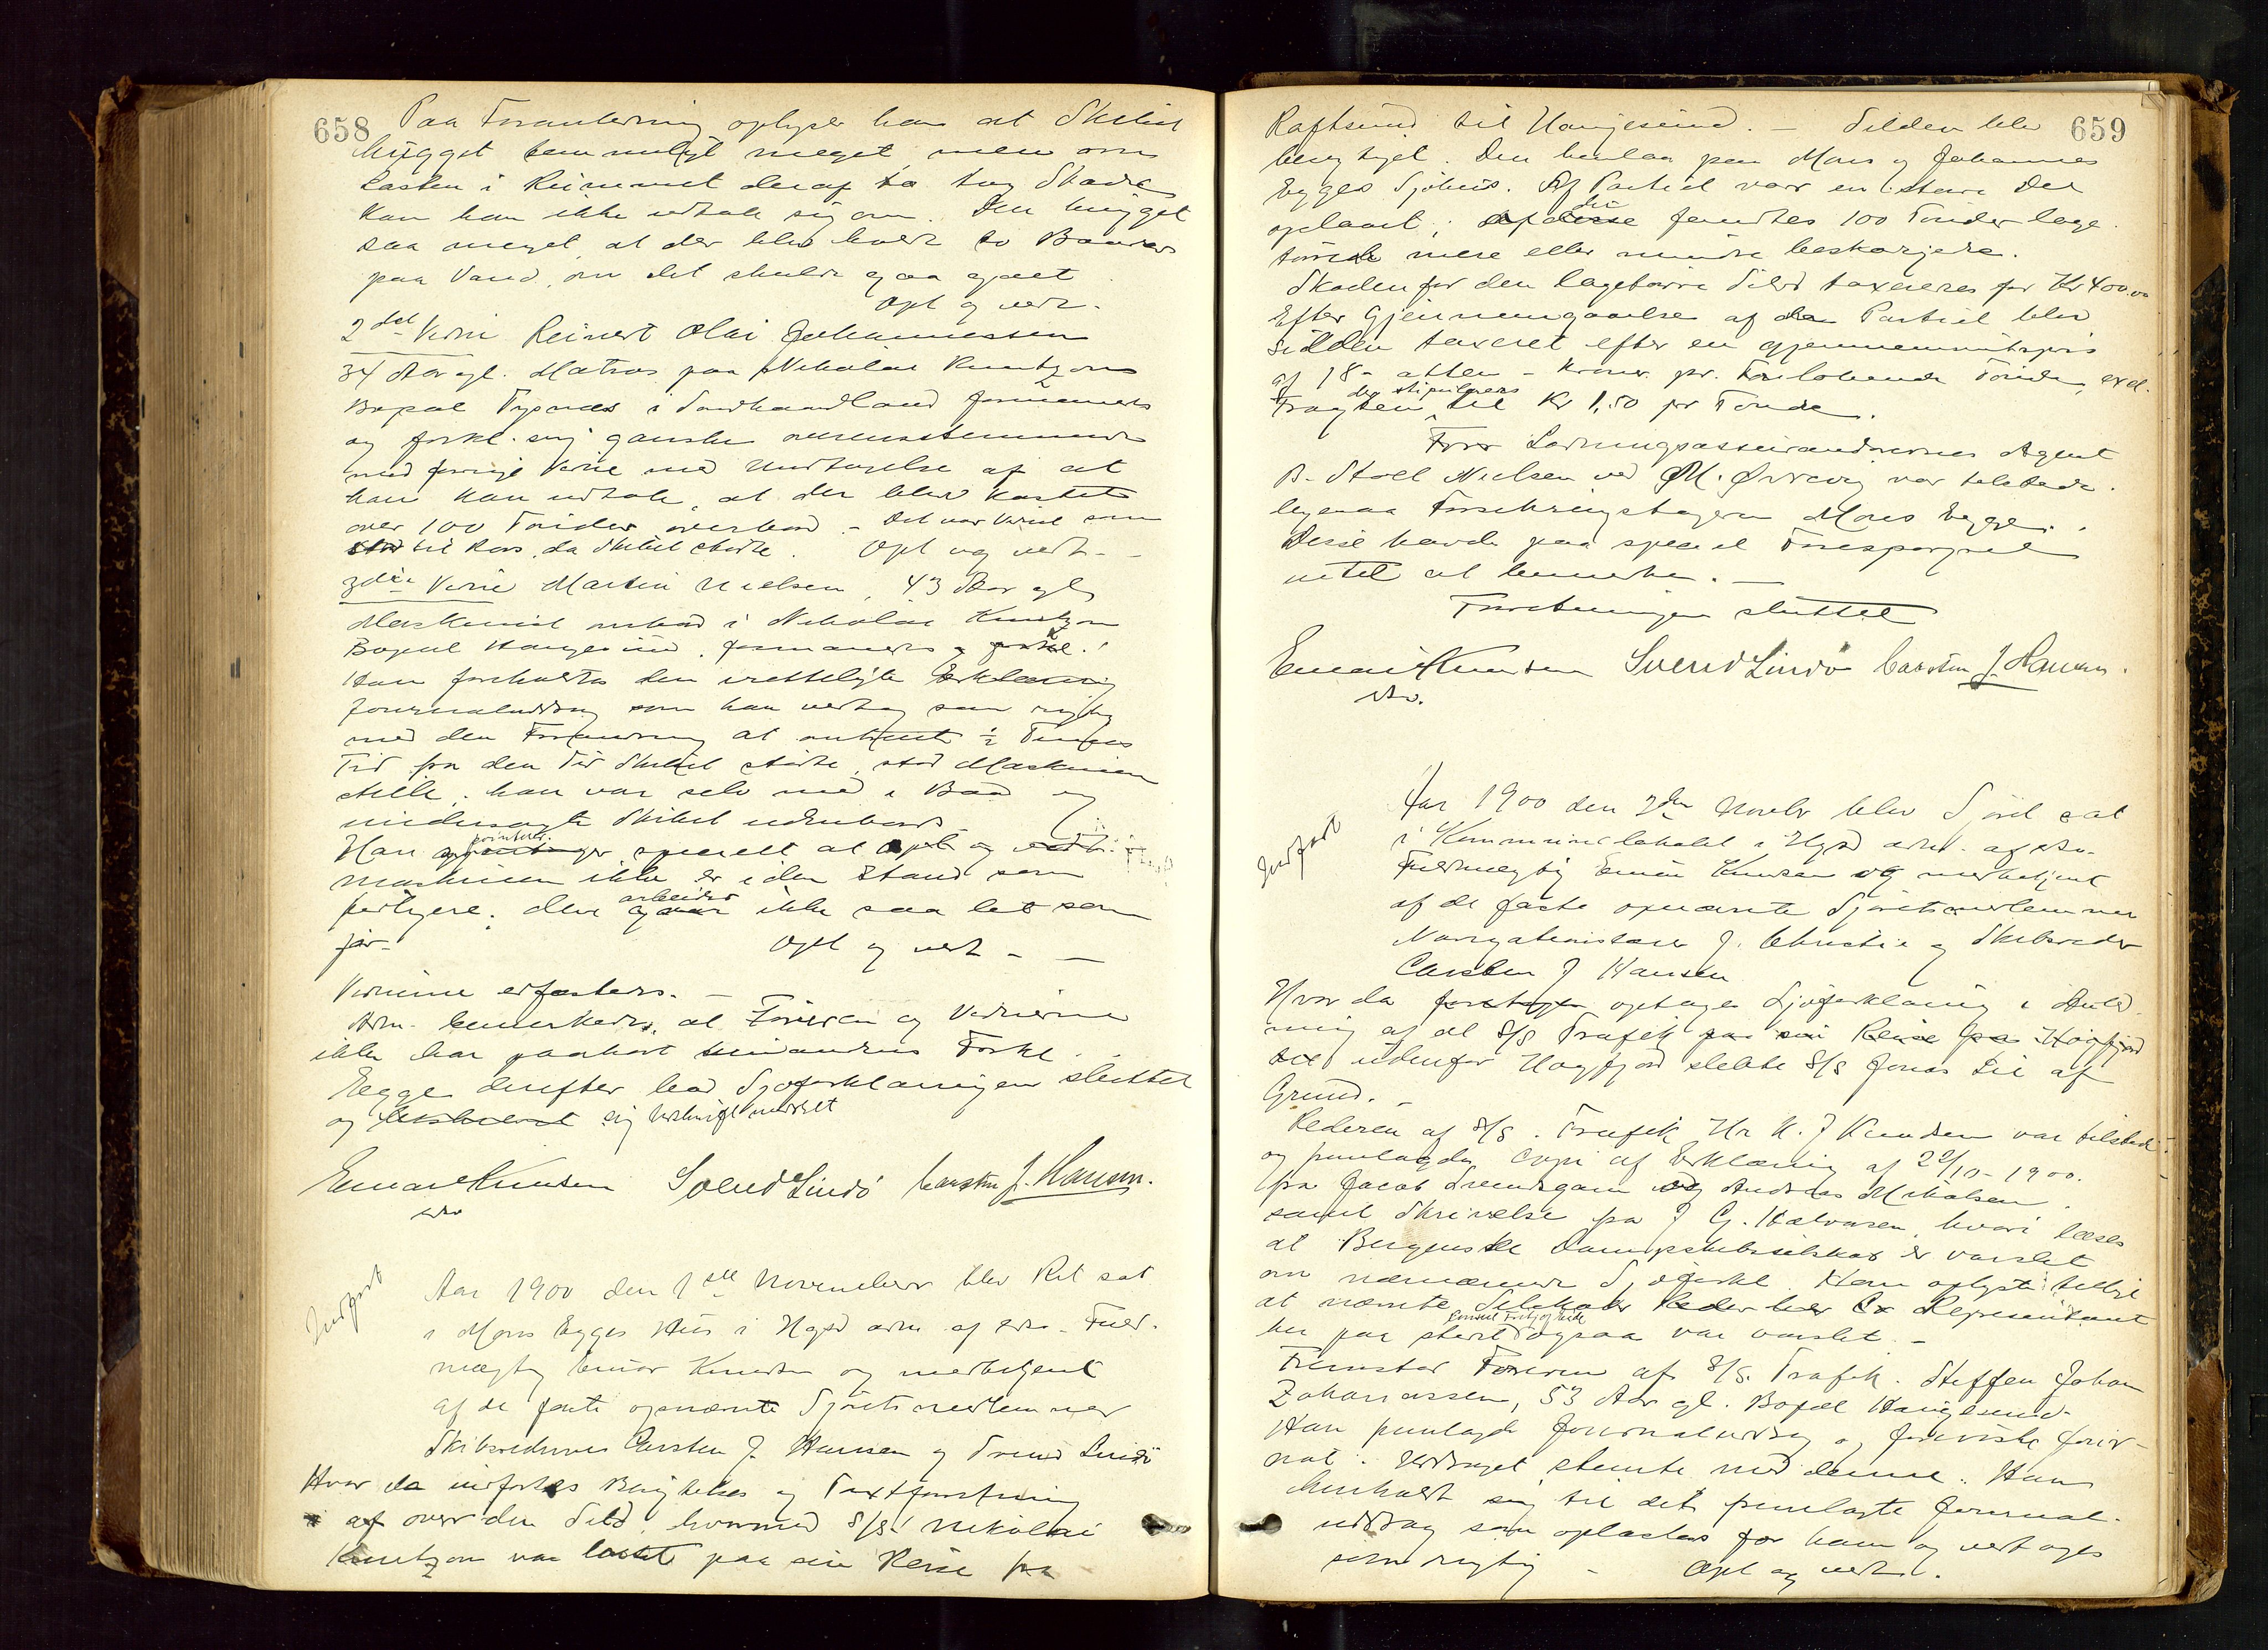 658
Paa Foranledning oplyser han at Skibet
hugget temmeligt meget, men om
Lasten i Rummet deraf to tog Skade
kan han ikke udtale sig om. Den hugget
saa meget, at der blev holdt to Baade
paa Vand, om det skulde gaa galt.
Opl og vedt.
2det Vidne Reinert Olai Johannessen
34 Aar gl. Matros paa Nikolai Knutzon
Bopæl Tysnæs i Søndhordland formanet
og forkl. sig ganske overensstemmende
med forrige Vidne med Undtagelse af at
han kan udtale, at der blev kastet
over 100 Tønder overbord. - Det var Vidnet som
stod til Rors, da Skibet stødte. Opl og vedt. -
3die Vidne Martin Nielsen, 43 Aar gl,
Maskinist ombord i Nikolai Knutzon
Bopæl Haugesund, formanedes og forkl.:
Han foreholdtes den irettelagte Erklæring
Journaludtog som han vedtog som rigtig
med den Forandring at omtrent ½ Times
Tid fra den Tid Skibet stødte, stod Maskinen
stille. han var selv med i Baad og
undersøgte Skibet udenbords
pointerer
Han specielt at Opl og vedt.
maskinen ikke er i den Stand som
arbeider
tidligere. den ikke saa let som
før. Opl og vedt - -
Vidnerne edfæstedes. -
Adm. bemerkede, at Føreren og Vidnerne
ikke har paahørt hinandens Forkl.
Begge derefter lod Sjøforklaringen sluttet
og sig beskrivet meddelt
Einar Knudsen Svend Lindø Carsten J. Hansen.
Indført
Aar 1900 den 1ste November blev Ret sat
i Mons Egges Hus i Hgsd adm af edsv. Fuld-
mægtig Einar Knudsen og medbetjent
af de faste opnævnte Sjøretsmedlemmer
Skibsrederne Carsten J. Hansen og Svend Lindø
Hvor da indførtes Besigtelses og Taxtforretning
af over den Sild, hvormed S/S Nikolai
Knutzon var lastet paa sin Reise fra
659
Raftsund til Haugesund. - Silden blev
besigtiget. Den henlaa paa Mons og Johannes
Egges Sjøhus. Af Partiet var en større Del
oplaget; af disse fandtes 100 Tønder lage-
tørre mere eller mindre beskadigede.
Skaden for den lagetørre Sild taxeres for Kr 400.00
Efter Gjennemgaaelse af da Partiet blev
Silden taxeret efter en gjennemsnitspris
af 18 - atten - Kroner pr. Tønde, excl.
der stipuleres
Fragten til Kr 1,50 pr Tønde.
For Ladningsassurandørernes Agent
B. Stoel Nielsen ved M. Ørrevig var tilstede.
ligesaa Forsikringstageren Mons Egge.
Disse havde paa speciel Forespørgsel
intet at bemerke. -
Forretningen sluttet
Einar Knudsen Svend Lindø Carsten J. Hansen.
Indført
Aar 1900 den 2den Novbr blev Sjøret sat
i Kommunelokalet i Hgsd adm. af edsv.
Fuldmægtig Einar Knudsen og medbetjent
af de faste opnævnte Sjøretsmedlemmer
Navigationslærer J. Christie og Skibsreder
Carsten J Hansen
Hvor da foretoges optages Sjøforklaring i Anled-
ning af at S/S Trafik paa sin Reise fra Høgsfjord
udenfor Høgsfjord slebte S/S Jonas Lie af
Grund. -
Rederen af S/S. Trafik Hr K. J Knudsen var tilstede
og fremlagde Copi af Erklæring af 22/10 - 1900.
fra Jacob og Andreas Mikalsen,
samt Skrivelse fra J G. Halvorsen, hvori læses
at Bergenske Dampskibsselskab er varslet
om nærværende Sjøforkl. Han oplyste tillige
at nævnte Selskabs Repræsentant
her paa stedet ogsaa var varslet. -
Fremstod Føreren af S/S. Trafik. Steffen Johan
Zakariassen, 53 Aar gl. Bopæl Haugesund.
Han fremlagde Journaludtog og foreviste Jour-
nal. Uddraget stemte med denne. Han
henholdt sig til det fremlagte Journal-
uddrag som oplæstes for ham og vedtoges
som rigtig - Opl og vedt.